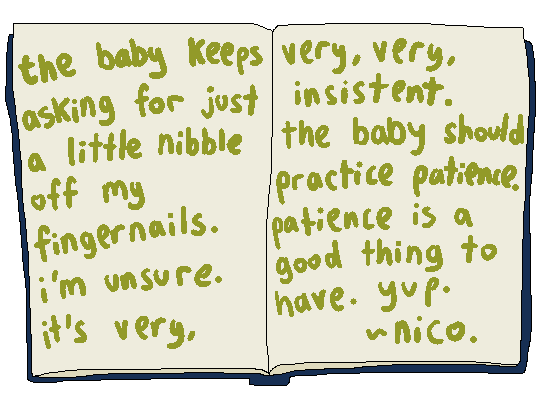 the baby keeps
asking for just
a little nibble
off my
fingernails.
i'm unsure.
it's very,
very, very,
insistent.
the baby should
practice patience.
patience is a
good thing to
have. yup.
~nico.